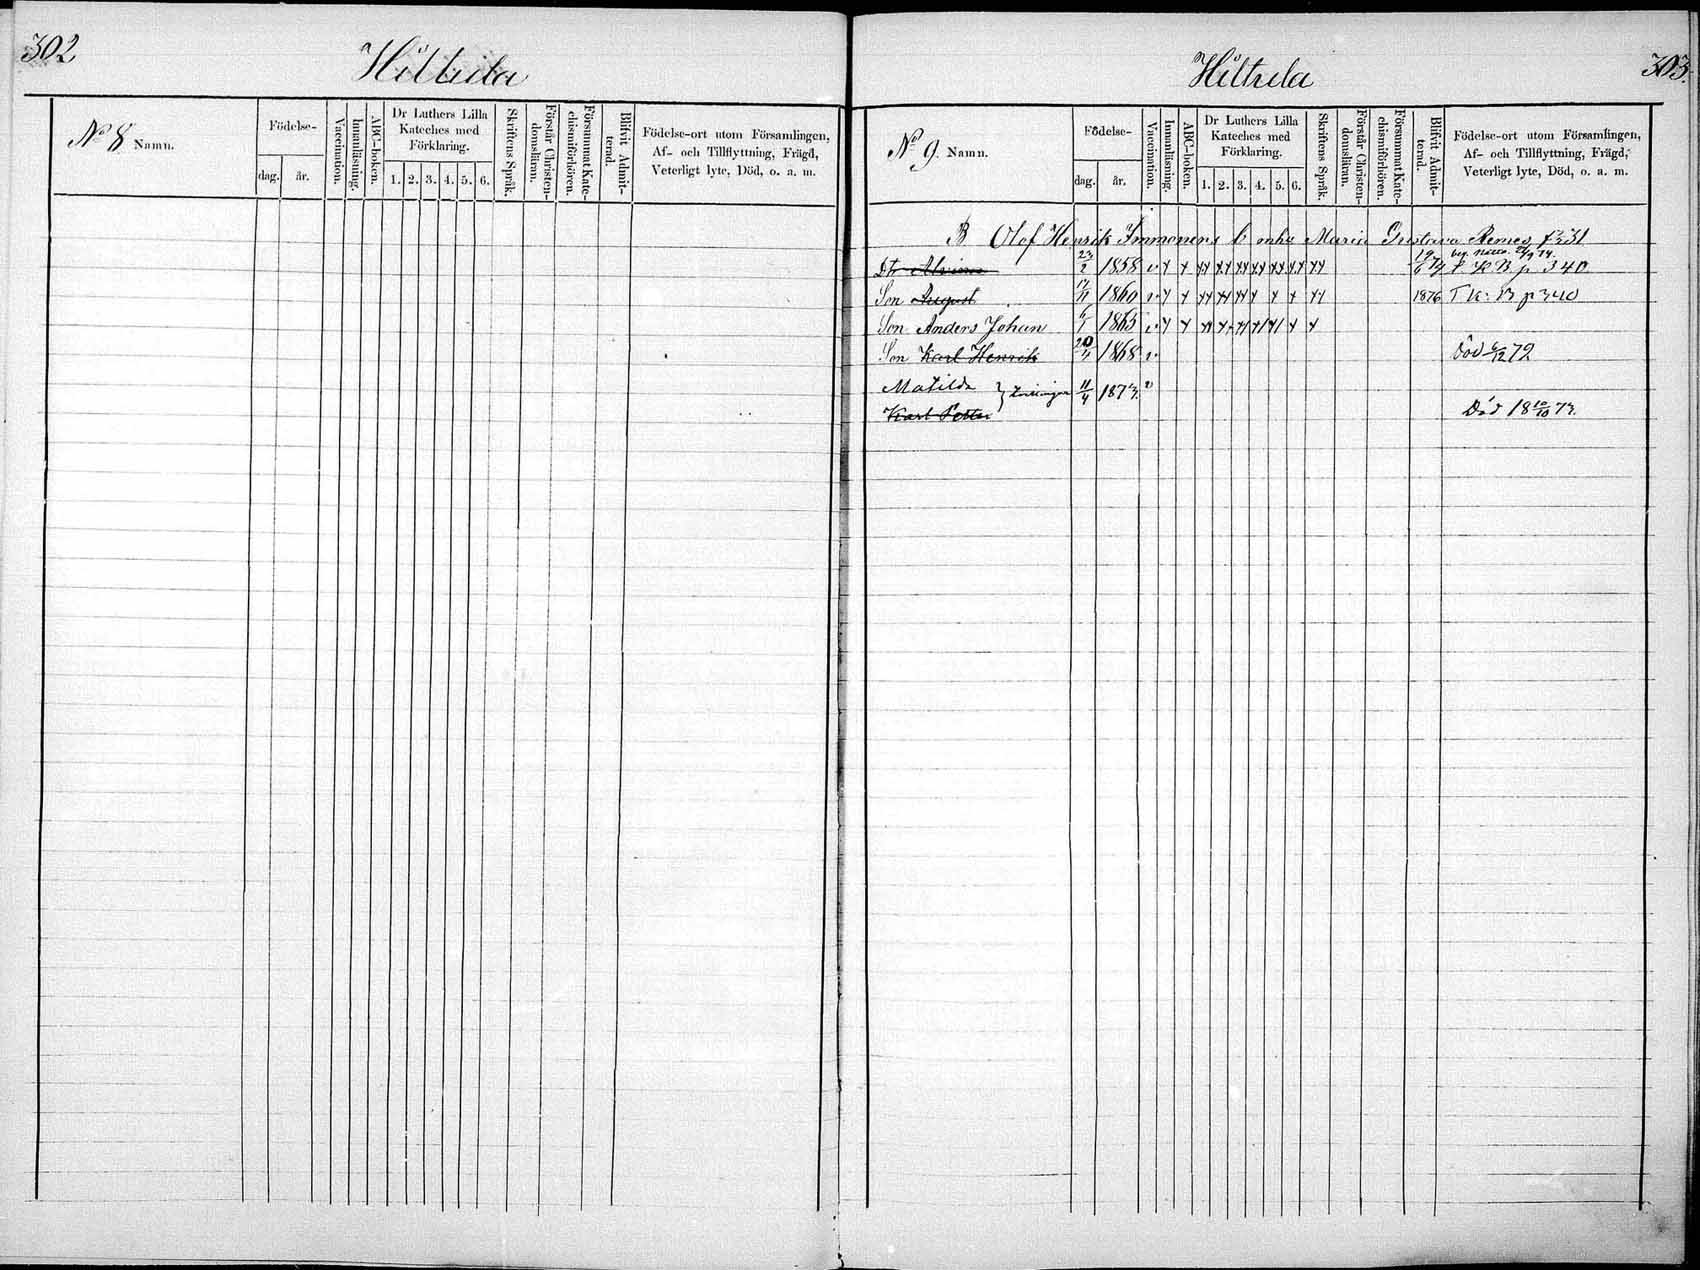 302
Hiltula
No 8 Namn.
Födelse-
dag. år.
Vaccination.
Innanläsning.
ABC-boken.
Dr Luthers Lilla
Kateches med
Förklaring.
1. 2. 3. 4. 5. 6.
Skriftens Språk.
Förstår Christen-
domsläran.
Försummat Kate-
chismiförhören.
Blifvit Admit-
terad.
Födelse-ort utom Församlingen,
Af- och Tillflyttning, Frägd,
Veterligt lyte, Död, o. a. m.
303.
Hiltula
No 9. Namn.
Födelse-
dag. år.
Vaccination.
Innanläsning.
ABC-boken.
Dr Luthers Lilla
Kateches med
Förklaring.
1. 2. 3. 4. 5. 6.
Skriftens Språk.
Förstår Christen-
domsläran.
Försummat Kate-
chismiförhören.
Blifvit Admit-
terad.
Födelse-ort utom Församlingen,
Af- och Tillflyttning, Frägd,
Veterligt lyte, Död, o. a. m.
B Olof Henrik Immonens b Maria Gustava Remes
Dtr Alvina 23/2 1858 K B p 340
Son August 1860 1876 T K. B p 340
Son Anders Johan 6/1 1865
Son Karl Henrik 1868 död 6/12 72
Matilda } tvillingar 11/4 1873.
Karl Petter Död 18 10/10 73.